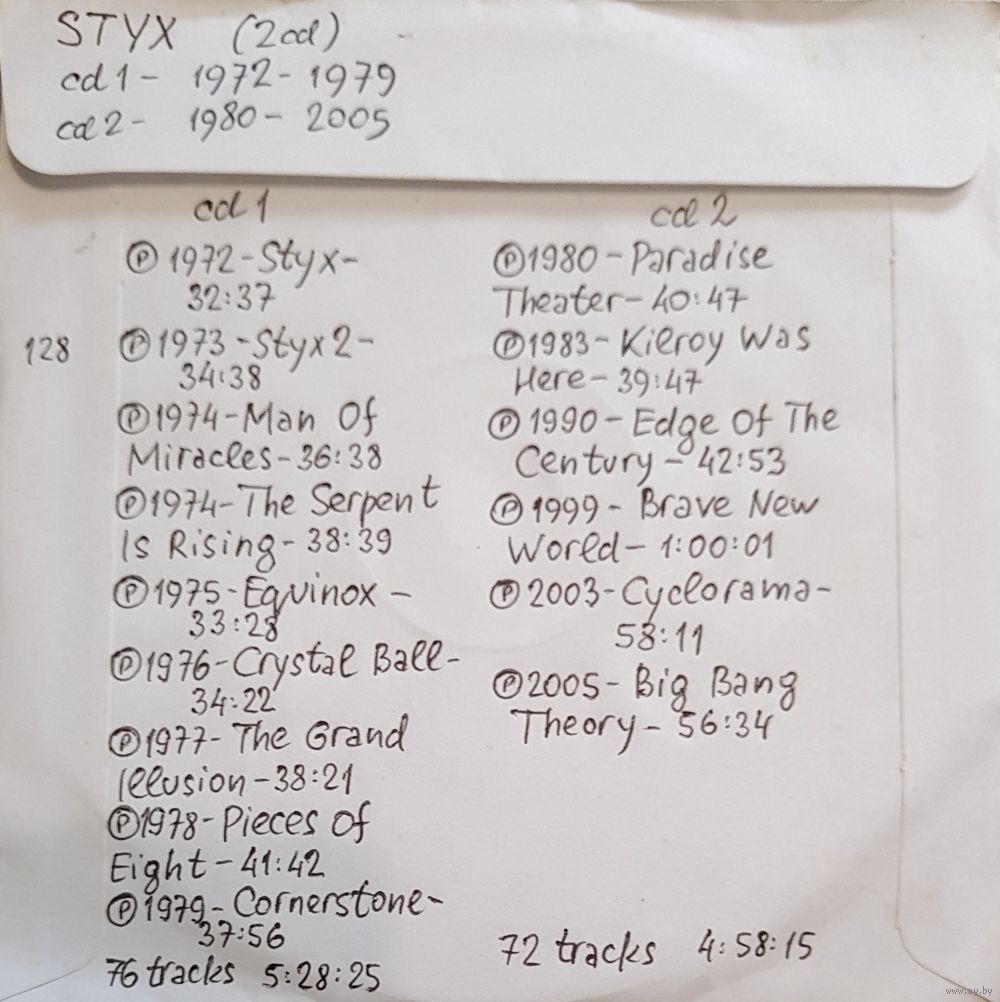 STYX (2cd)
cd 1 - 1972 - 1979
cd 2 - 1980 - 2005
cd 1
Ⓟ 1972 - Styx -
32:37
128
Ⓟ 1973 - Styx 2 -
34:38
Ⓟ 1974 - Man Of
Miracles - 36:38
Ⓟ 1974 - The Serpent
Is Rising - 38:39
Ⓟ 1975 - Equinox -
33:28
Ⓟ 1976 - Crystal Ball -
34:22
Ⓟ 1977 - The Grand
Illusion - 38:21
Ⓟ 1978 - Pieces Of
Eight - 41:42
Ⓟ 1979 - Cornerstone -
37:56
76 tracks 5:28:25
cd 2
Ⓟ 1980 - Paradise
Theater - 40:47
Ⓟ 1983 - Kilroy Was
Here - 39:47
Ⓟ 1990 - Edge Of The
Century - 42:53
Ⓟ 1999 - Brave New
World - 1:00:01
Ⓟ 2003 - Cyclorama -
58:11
Ⓟ 2005 - Big Bang
Theory - 56:34
72 tracks 4:58:15
www.ay.by